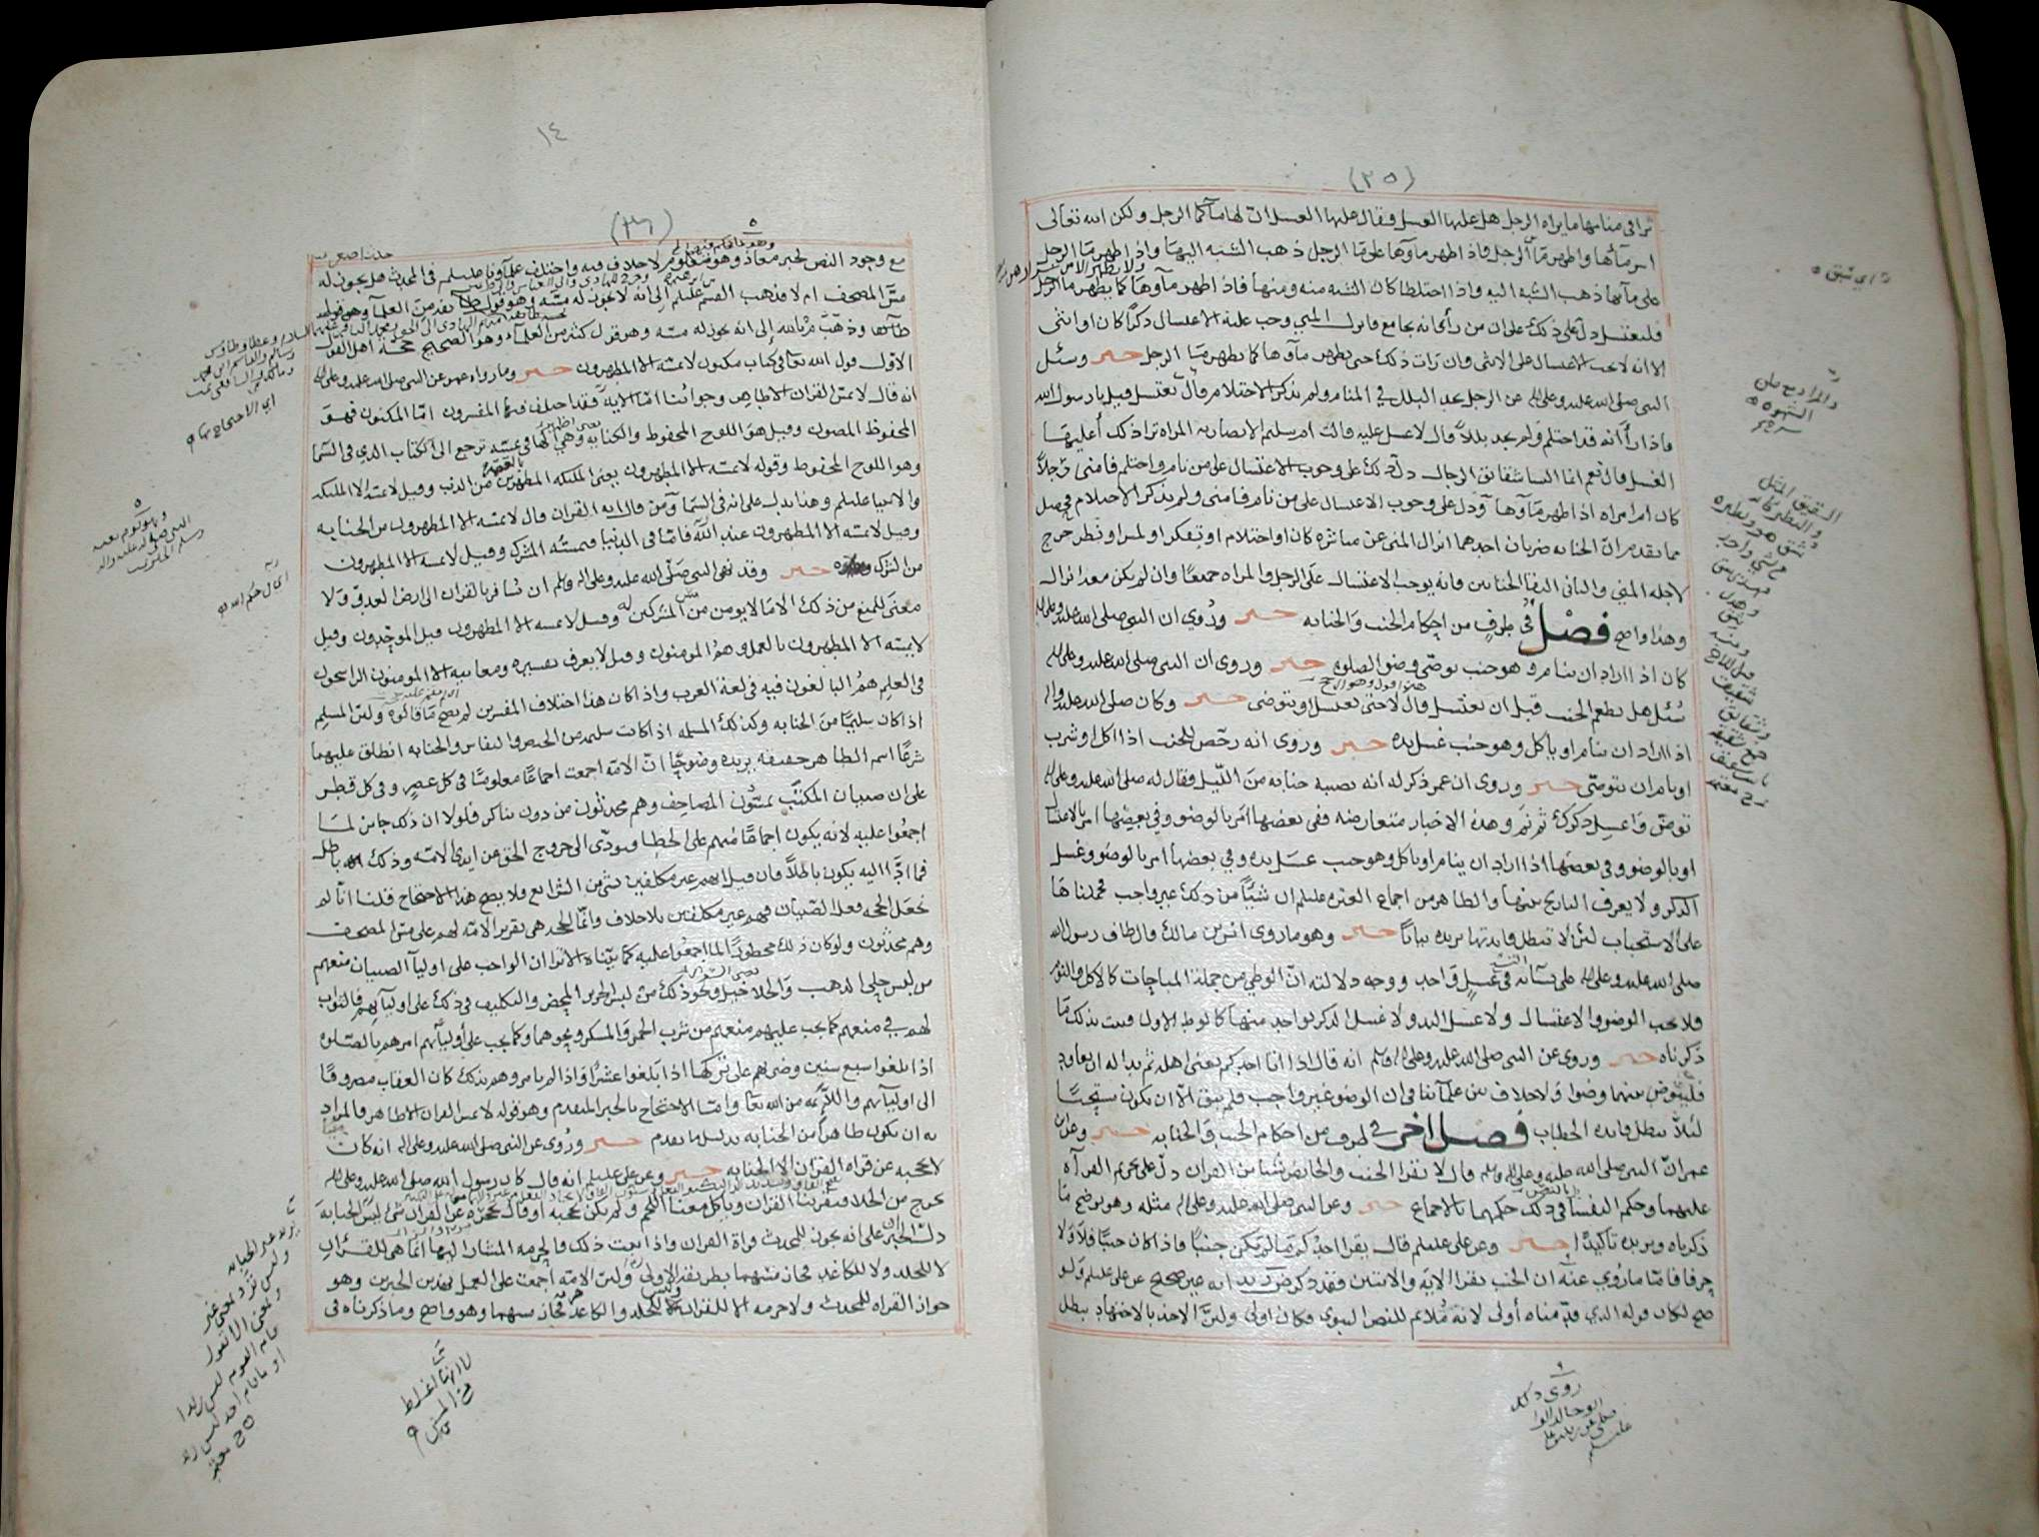 (٢٥)
ترا في منامها ما يراه الرجل هل عليها الغسل فقال عليها الغسل ان لها ماء كما الرجل ولكن الله تعالى
اسر مآئها واظهر مآ الرجل فاذا ظهر مآؤها على مآ الرجل ذهب الشبه اليها واذا ظهر مآ الرجل
على مآئها ذهب الشبه اليه واذا اختلطا كان الشبه منه ومنها فاذا ظهر مآؤها كما يظهر ما الرجل
فلتغتسل دل على ذلك على ان من رأى انه يجامع فانزل المني وجب عليه الاغتسال ذكرًا كان او انثى
الا انه لا يجب الاغتسال على الانثى وان رات ذلك حتى يظهر مآؤها كما يظهر مآ الرجل خبر وسئل
النبي صلى الله عليه وعلى اله عن الرجل يجد البلل في المنام ولم يذكر الاحتلام قال يغتسل قيل يا رسول الله
فاذا رأا انه قد احتلم ولم يجد بللاً قال لا غسل عليه قالت ام سليم الانصاريه المراه ترا ذلك أعليها
الغسل قال نعم انما النسا شقائق الرجال دل ذلك على وجوب الاغتسال على من نام واحتلم فامنى رجلاً
كان ام امراه اذا ظهر مآؤها ودل على وجوب الاغتسال على من نام فامنى ولم يذكر الاحتلام فحصل
مما تقدم ان الجنابه ضربان احدهما انزال المني عن مباشره كان او احتلام او تفكر او لمس او نظر خرج
لاجله المني والثاني التقا الختانين فانه يوجب الاغتسال على الرجل والمراه جميعًا وان لم يكن معه انزال
وهذا واضح فصل في طرف من احكام الجنب والجنابه خبر ورُوي ان النبي صلى الله عليه وعلى اله
كان اذا اراد ان ينام وهو جنب توضى وضوء الصلوه خبر وروي ان النبي صلى الله عليه وعلى اله
سُئل هل يطعم الجنب قبل ان يغتسل قال لا حتى يغتسل او يتوضى خبر وكان صلى الله عليه واله
اذا اراد ان ينام او ياكل وهو جنب غسل يده خبر وروي انه رخص للجنب اذا اكل او شرب
او نام ان يتوضى خبر وروي ان عمر ذكر له انه تصيبه جنابه من الليل فقال له صلى الله عليه وعلى اله
توضى واغسل ذكرك ثم نم وهذه الاخبار متعارضه ففي بعضها امر بالوضو وفي بعضها امر بالاغتسال
او بالوضو وفي بعضها اذا اراد ان ينام او ياكل وهو جنب غسل يده وفي بعضها امر بالوضو وغسل
الذكر ولا يعرف التاريخ بينها والظاهر من اجماع العتره عليلم ان شيئًا من ذلك غير واجب فحملناها
على الاستحباب لئن لا تبطل فايدتها يزيده بيانًا خبر وهو ما روى انس بن مالك قال طاف رسول الله
صلى الله عليه وعلى اله على نسآئه في غسل واحد ووجه دلالته ان الوطي من جملة المباحات كالاكل والنوم
فلا يجب الوضو والاغتسال ولا غسل اليد ولا غسل الذكر لواحد منها كالوطي الاول فثبت بذلك ما
ذكرناه خبر وروي عن النبي صلى الله عليه وعلى اله وسلم انه قال اذا اتا احدكم يعني اهله ثم بدا له ان يعاود
فليتوض بينهما وضوا ولا خلاف بين علمآئنا في ان الوضو غير واجب فلم يبق الا ان يكون مستحبًا
لئلا تبطل فايده الخطاب فصل اخر في طرف من احكام الجنب والجنابه خبر وعن ابن
عمر ان النبي صلى الله عليه وعلى اله وسلم قال لا تقرا الجنب والحائض شيئا من القران دل على تحريم القرآه
عليهما وحكم النفسا في ذلك حكمهما بالاجماع خبر وعن النبي صلى الله عليه وعلى اله مثله وهو يوضح ما
ذكرناه ويزيده تاكيدًا خبر وعن علي عليلم قال يقرا احدكم مالم يكن جنبًا فاذا كان جنبًا فلا ولا
حرفا فاما ما رُوي عنه ان الجنب يقرا الايه والايتين فقد ذكر انه غير صحيح عن علي عليلم ولو
صح لكان قوله الذي قدمناه أولى لانه مُلائم للنص النبوي فكان اولى ولئن الاخذ بالاجتهاد يبطل
اي شبق
والمراد بيع من
الشهوه
الشقيق المثل
والنظير
روى ذلك
ابو خالد الوا
سطي عن زيد بن علي
عليلم
١٤
(٢٦)
مع وجود النص لخبر معاذ وهو معلوم لا خلاف فيه واختلف علمآؤنا عليلم في المحدث هل يجوز له
مسّ المصحف ام لا فذهب القسم عليلم الى انه لا يجوز له مسّه وهو قول
وذهب م بالله الى انه يجوز له مسّه وهو قول كثير من العلمآء وهو الصحيح حجة اهل القول
الاول قول الله تعا في كتاب مكنون لا يمسّه الا المطهرون خبر وما رواه عمر عن النبي صلى الله عليه وعلى اله
انه قال لا يمسّ القران الا طاهر وجوابُنا امّا الايه فقد اختلف فيها المفسرون امّا المكنون فهو
المحفوظ المصون وقيل هو اللوح المحفوظ والكنايه وهي الها في يمسّه ترجع الى الكتاب الذي في السّما
وهو اللوح المحفوظ وقوله لا يمسّه الا المطهرون يعني الملئكه المطهرين من الذنب وقيل لا يمسّه الا الملئكه
والانبيا عليلم وهذا يدل على انه في السّما ومن قال انه القران قال لا يمسّه الا المطهرون من الجنابه
وقيل لا يمسّه الا المطهرون عند الله فامّا في الدنيا فيمسّه المشرك وقيل لا يمسه الا المطهرون
من الشرك خبر وقد نهى النبي صلى الله عليه وعلى اله وسلم ان يُسافر بالقران الى ارض العدو ولا
معنى للمنع من ذلك الا ما لا يومن من مسّ المشركين له وقيل لا يمسه الا المطهرون قبل الموحّدون وقيل
لا يمسّه الا المطهرون بالعمل وهُمُ المومنون وقيل لا يعرف تفسيره ومعانيه الا المومنون الراسخون
في العلم همُ البالغون فيه في لغة العرب واذا كان هذا اختلاف المفسرين لم يصح ما قالوه ولئن المسلم
اذا كان سليمًا من الجنابه وكذلك المسلمه اذا كانت سليمه من الحيض والنفاس والجنابه انطلق عليهما
شرعًا اسم الطاهر حقيقه يزيده وضوحًا انّ الامّه اجمعت اجماعًا معلومًا في كل عصر وفي كل قطر
على ان صبيان المكتب يمسّون المصاحف وهم محدثون من دون تناكر فلولا ان ذلك جايز لما
اجمعُوا عليه لانه يكون اجماعًا منهم على الخطا فيودّي الى خروج الحق من ايدي الامّه وذلك باطل
فما ادّا اليه يكون باطلاً فان قيل انهم غير مكلفين بشي من الشرايع فلا يصح هذا الاحتجاج قلنا انّا لم
نجعل الحجه فعل الصّبيان فهم غير مكلفين بلا خلاف وانّما الحجه هي تقرير الامّه لهم على مسّ المصحف
وهم محدثون ولو كان ذلك محظورًا لما اجمعُوا عليه كما بيّناه الا ترا ان الواجب على اوليآ الصبيان منعهم
من لبس حلي الذهب والخلاخيل ونحو ذلك من لبس الحرير المحض والتكليف في ذلك على اوليآئهم فالثواب
لهم في منعهم كما يجب عليهم منعهم من شرب الخمر والمسكر ونحوهما وكما يجب على أوليآئهم امرهم بالصّلوه
اذا بلغوا سبع سنين وضربهم على تركها اذا بلغوا عشرًا واذا لم يامروهم بذلك كان العقاب مصروفًا
الى اوليآئهم واللآئمه من الله تعا وامّا الاحتجاج بالخبر المتقدم وهو قوله لا يمس القران الا طاهر فالمراد
به ان يكون طاهرًا من الجنابه بدليل ما تقدم خبر ورُوي عن النبي صلى الله عليه وعلى اله انه كان
لا يحجبه عن قراه القران الا الجنابه خبر وعن علي عليلم انه قال كان رسول الله صلى الله عليه وعلى اله
يخرج من الخلا فيقرينا القران وياكل معنا اللحم ولم يكن يحجبه او قال يحجزه عن القران شيء ليس الجنابة
دل الخبران على انه يجوز للمحدث قراة القران واذا ثبت ذلك فالحرمه المشار اليها انما هي للقرآن
لا للجلد ولا للكاغد فجاز مسّهما بطريقه الاولى ولئن الامّه اجمعت على العمل بهذين الخبرين وهو
جواز القراه للمحدث ولا حرمه الا للقران وليس للجلد والكاغد حرمه فجاز مسهما وهو واضح وما ذكرناه في
وعطا وطاوس
اي الاحتجاج بها
النبي صلى الله عليه واله
وسلم
يريد غير الجنابه
وليس ترد بمعنى غير
قام القوم ليس زيدا